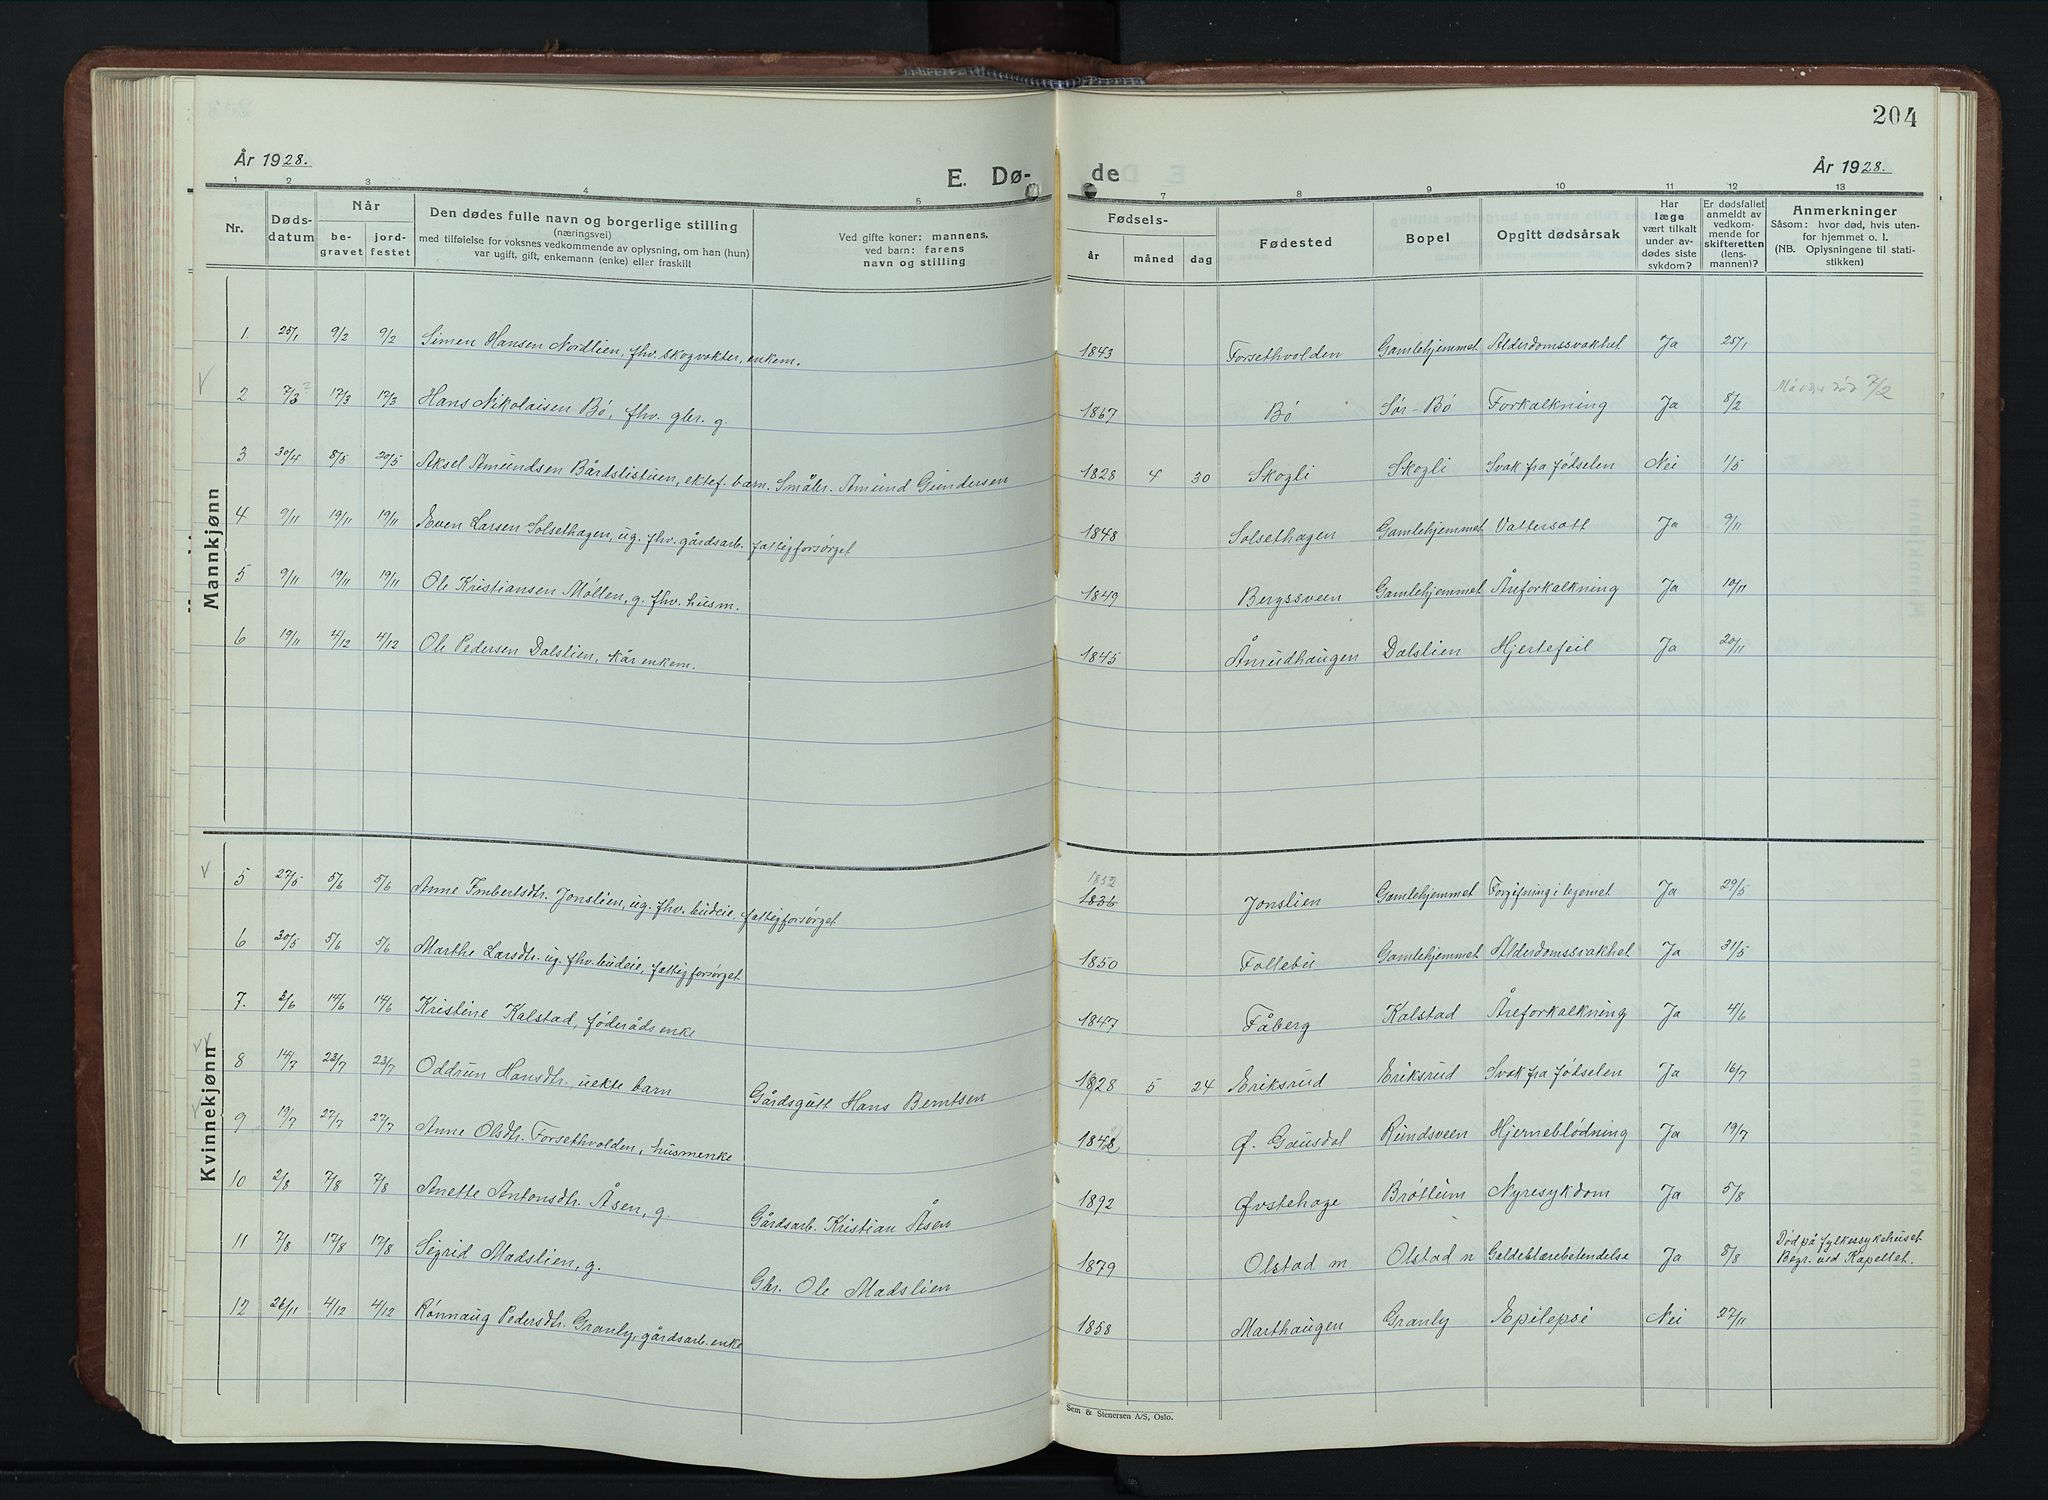 204
År 1928.
E. Dø-
de
År 1928.
1 2 3 4 5 7 8 9 10 11 12 13
Nr.
Døds-
datum
Når
be-
gravet
jord-
festet
Den dødes fulle navn og borgerlige stilling
(næringsvei)
med tilføielse for voksnes vedkommende av oplysning, om han (hun)
var ugift, gift, enkemann (enke) eller fraskilt
Ved gifte koner: mannens,
ved barn: farens
navn og stilling
Fødsels-
år måned dag
Fødested
Bopel
Opgitt dødsårsak
Har
læge
vært tilkalt
under av-
dødes siste
sykdom?
Er dødsfallet
anmeldt av
vedkom-
mende for
skifteretten
(lens-
mannen)?
Anmerkninger
Såsom: hvor død, hvis uten-
for hjemmet o. l.
(NB. Oplysningene til stati-
stikken)
Mannkjønn
1 25/1 9/2 9/2 Simen Hansen Nordlien, fhv. skogvokter, enkem. 1843 Forsethvolden Gamlehjemmet Alderdomssvakhet Ja 25/1
2 7/3? 17/3 17/3 Hans Nikolaisen Bø, fhv. gbr. g. 1867 Bø Sør-Bø Forkalkning Ja 8/2 Må være død 7/2
3 30/4 8/5 20/5 Aksel Amundsen Bårdslistuen, ektef. barn. Småbr. Amund Gundersen 1828 4 30 Skogli Skogli Svak fra fødselen Nei 1/5
4 9/11 19/11 19/11 Even Larsen Solsethagen, ug. fhv. gårdsarb. fattigforsørget 1848 Solsethagen Gamlehjemmet Vattersott Ja 9/11
5 9/11 19/11 19/11 Ole Kristiansen Møllen, g. fhv. husm. 1849 Bergssveen Gamlehjemmet Åreforkalkning Ja 10/11
6 19/11 4/12 4/12 Ole Pedersen Dalslien, kårenkem. 1845 Åmudhaugen Dalslien Hjertefeil Ja 20/11
Kvinnekjønn
1852
5 27/5 5/6 5/6 Anne Imbertsdtr. Jonslien, ug. fhv. budeie, fattigforsørget 1836 Jonslien Gamlehjemmet Forgifning i legemet Ja 29/5
6 30/5 5/6 5/6 Marthe Larsdtr. ug. fhv. budeie, fattigforsørget 1850 Follebu Gamlehjemmet Alderdomssvakhet Ja 31/5
7. 3/6 14/6 14/6 Kristine Kalstad, føderådsenke 1847 Fåberg Kalstad Åreforkalkning Ja 4/6
8 14/7 23/7 23/7 Oddrun Hansdtr., uekte barn Gårdsgutt Hans Berntsen 1928 5 24 Eriksrud Eriksrud Svak fra fødselen Ja 16/7
9 19/7 27/7 27/7 Anne Olsdtr. Forsethvolden, husmenke 1842 Ø. Gausdal Rundsveen Hjerneblødning Ja 19/7
10 2/8 7/8 7/8 Anette Antonsdtr. Åsen, g. Gårdsarb. Kristian Åsen 1892 Øvstehage Brøttum Nyresykdom Ja 5/8
11 7/8 17/8 17/8 Sigrid Madslien, g. Gbr. Ole Madslien 1879 Olstad m Olstad n Galdeblærebetendelse Ja 8/8 Død på fylkessykehuset
Begr. ved Kapellet.
12 26/11 4/12 4/12 Rønnaug Pedersdtr. Granly, gårdsarb. enke 1858 Marthaugen Granly Epilepsi Nei 27/11
Sem & Stenersen A/S, Oslo.